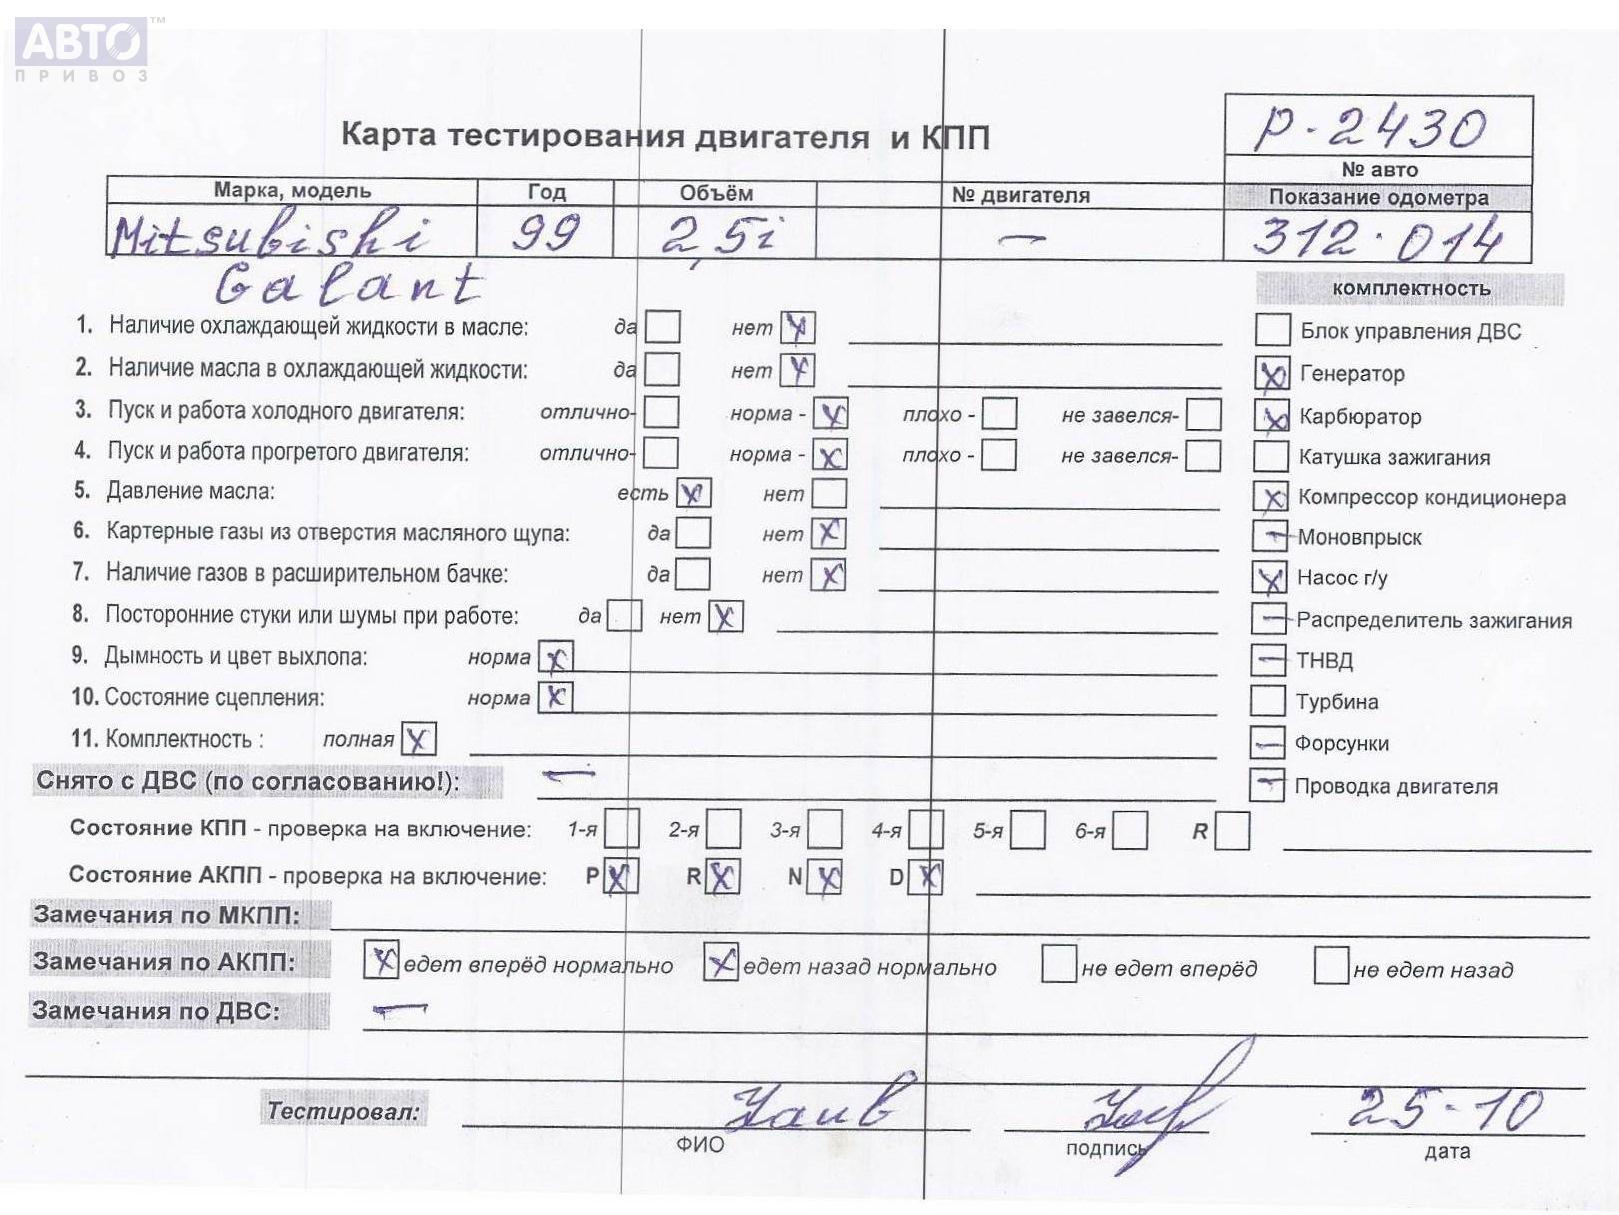 АВТО ™
ПРИВОЗ
Р-2430
Карта тестирования двигателя и КПП
№ авто
Марка, модель Год Объём № двигателя Показание одометра
Mitsubishi 99 2,5i — 312.014
Galant
комплектность
1. Наличие охлаждающей жидкости в масле: да нет x
Блок управления ДВС
2. Наличие масла в охлаждающей жидкости: да нет x
x Генератор
3. Пуск и работа холодного двигателя: отлично- норма - x плохо - не завелся-
x Карбюратор
4. Пуск и работа прогретого двигателя: отлично- норма - x плохо - не завелся-
Катушка зажигания
5. Давление масла: есть x нет
x Компрессор кондиционера
6. Картерные газы из отверстия масляного щупа: да нет x
— Моновпрыск
7. Наличие газов в расширительном бачке: да нет x
x Насос г/у
8. Посторонние стуки или шумы при работе: да нет x
— Распределитель зажигания
9. Дымность и цвет выхлопа: норма x
— ТНВД
10. Состояние сцепления: норма x
Турбина
11. Комплектность : полная x
— Форсунки
Снято с ДВС (по согласованию!): —
— Проводка двигателя
Состояние КПП - проверка на включение: 1-я 2-я 3-я 4-я 5-я 6-я R
Состояние АКПП - проверка на включение: P x R x N x D x
Замечания по МКПП:
Замечания по АКПП: x едет вперёд нормально x едет назад нормально не едет вперёд не едет назад
Замечания по ДВС: —
Тестировал: 25-10
ФИО подпись дата